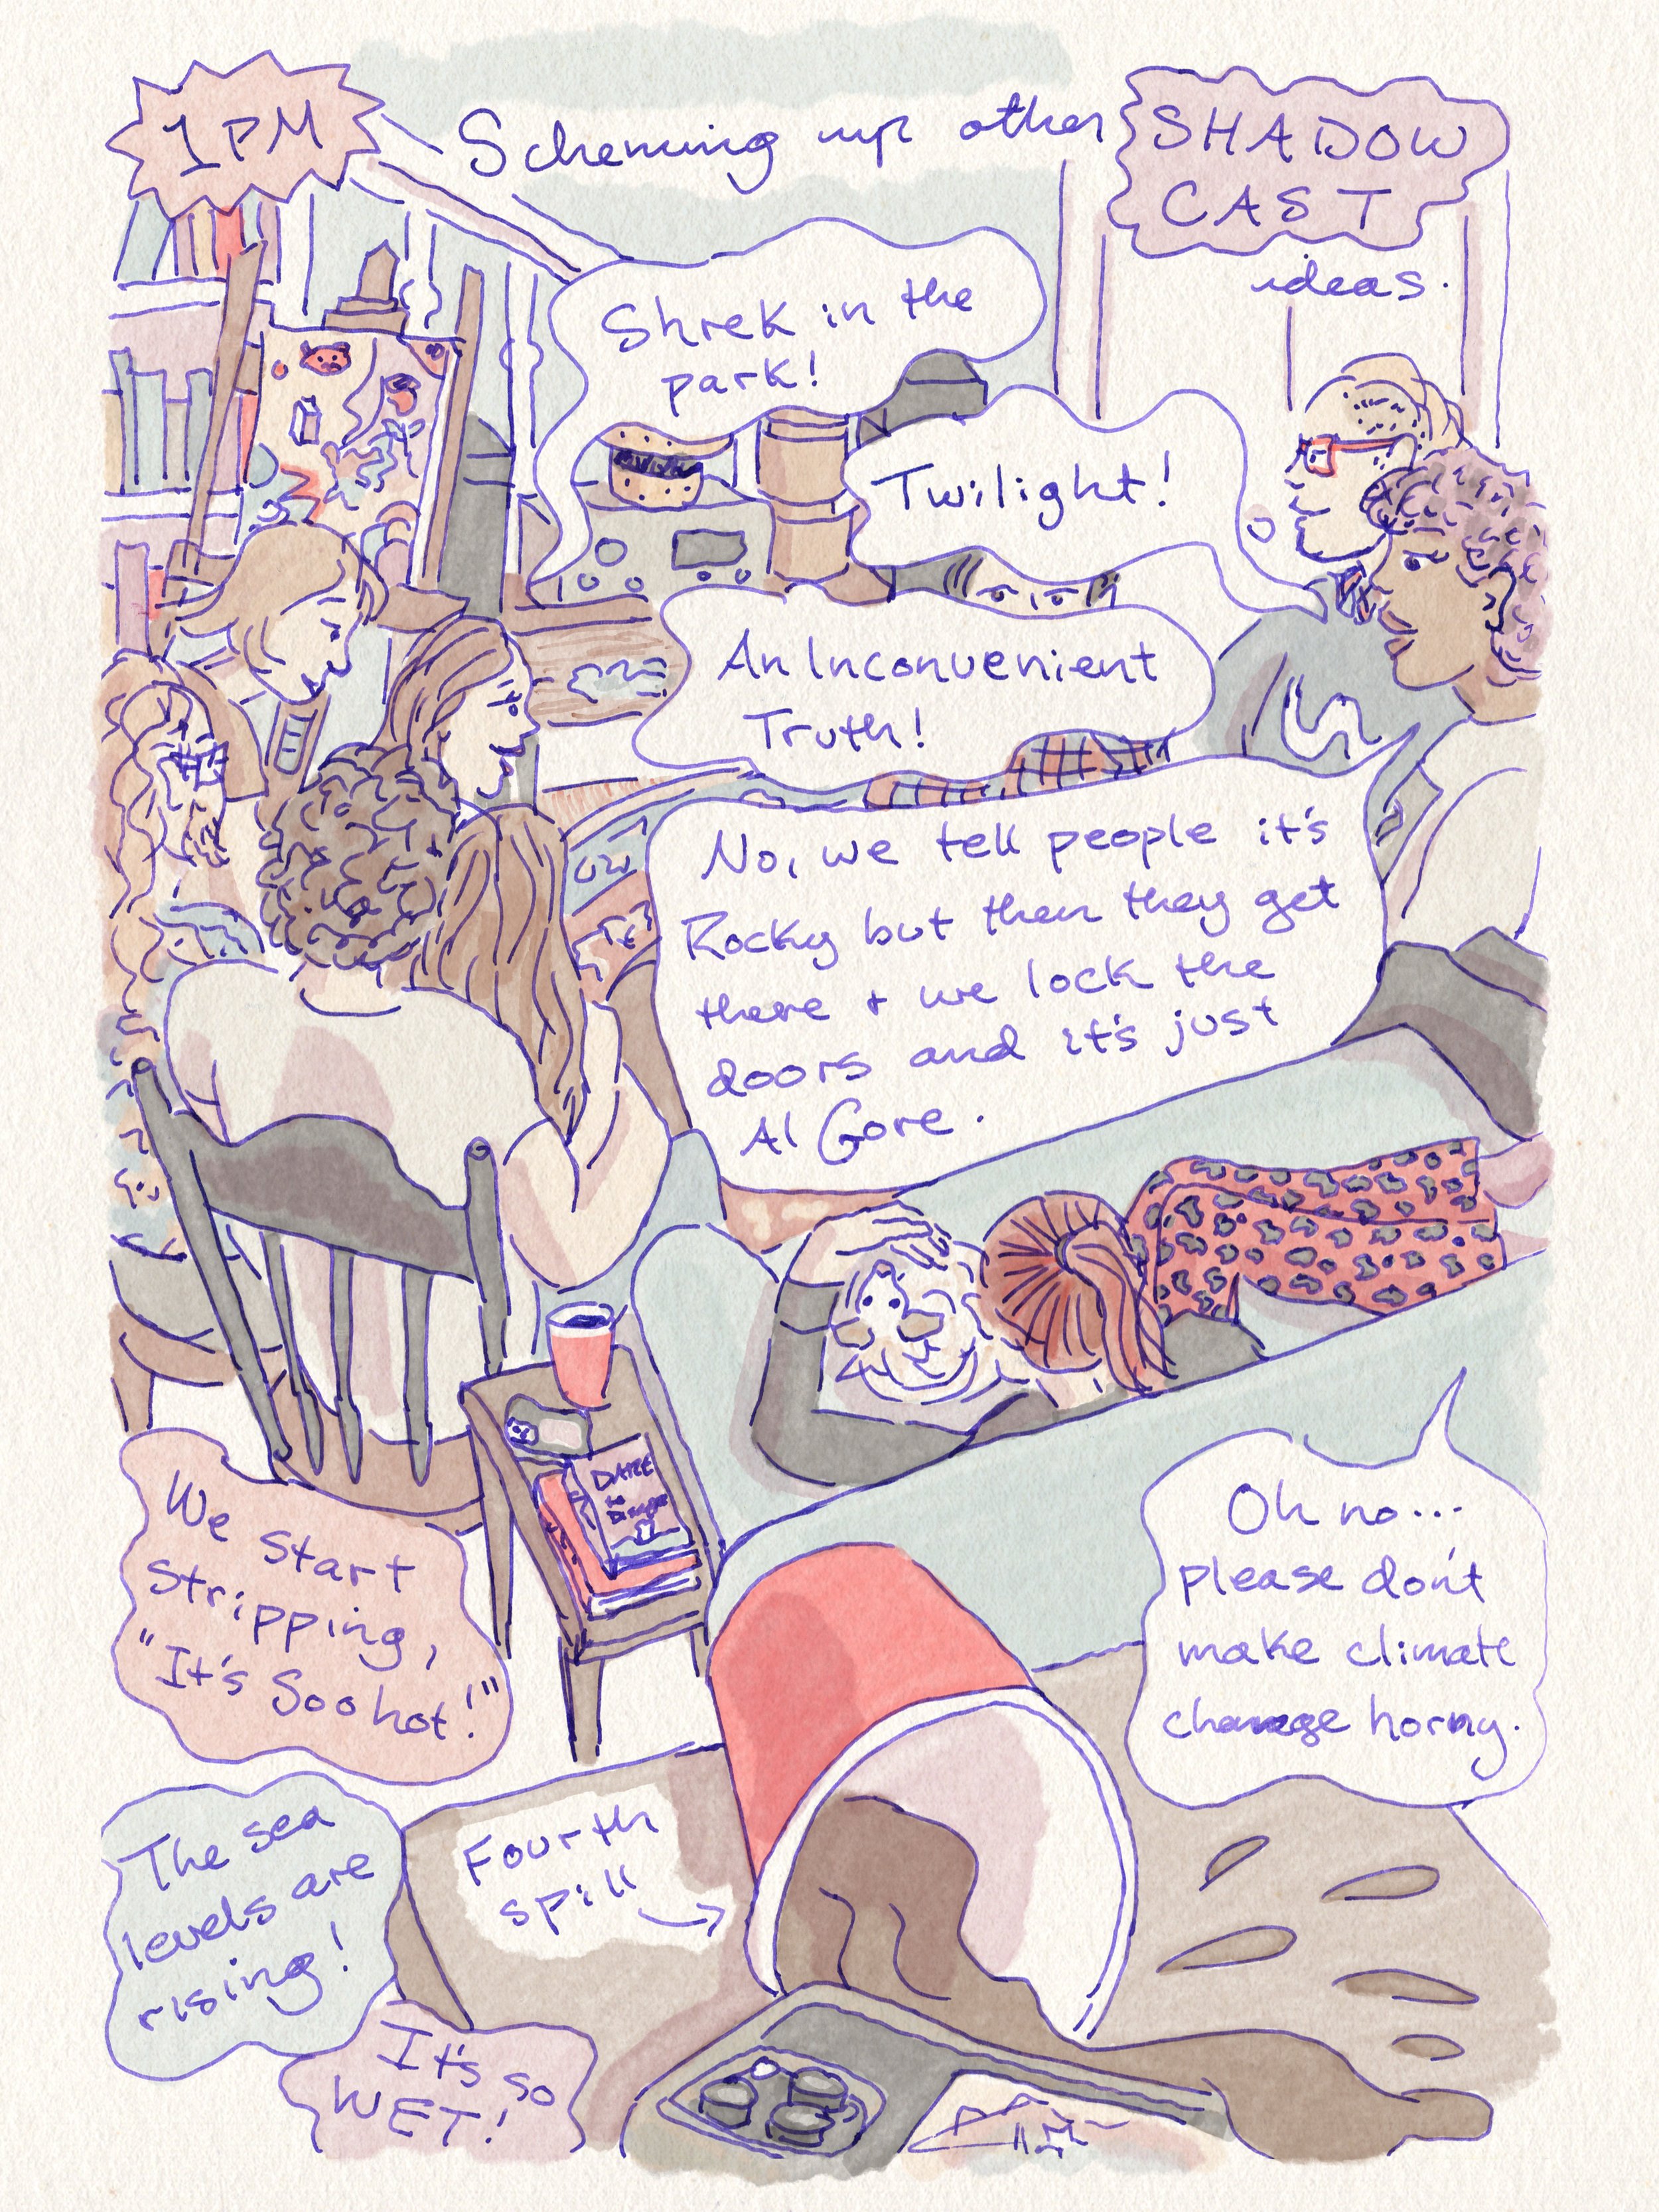 1 PM
Scheming up other
SHADOW
CAST
ideas.
Shrek in the
park!
Twilight!
An Inconvenient
Truth!
No, we tell people it's
Rocky but then they get
there + we lock the
doors and it's just
Al Gore.
DARE
to
We start
stripping,
"It's Soo hot!"
Oh no...
please don't
make climate
change horny.
The sea
levels are
rising!
Fourth
spill
It's so
WET!